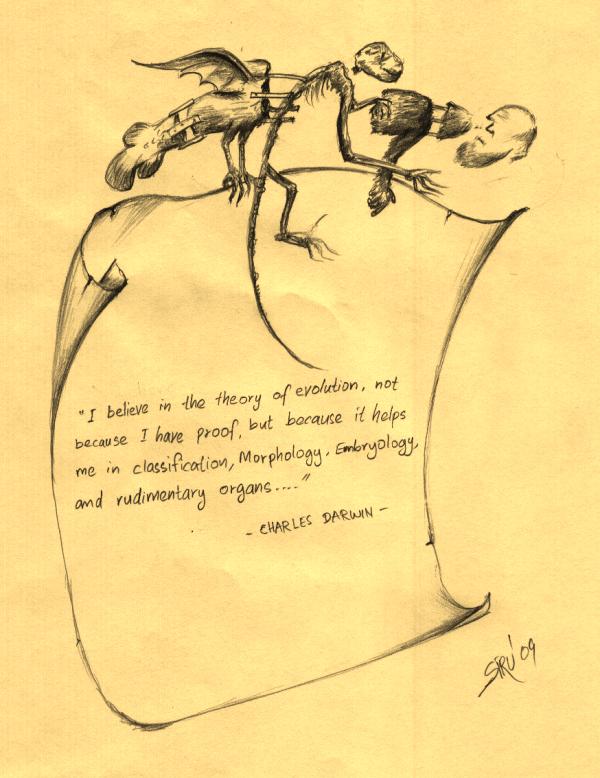 "I believe in the theory of evolution, not
because I have proof, but because it helps
me in classification, Morphology, Embryology,
and rudimentary organs...."
- CHARLES DARWIN -
SIRU '09